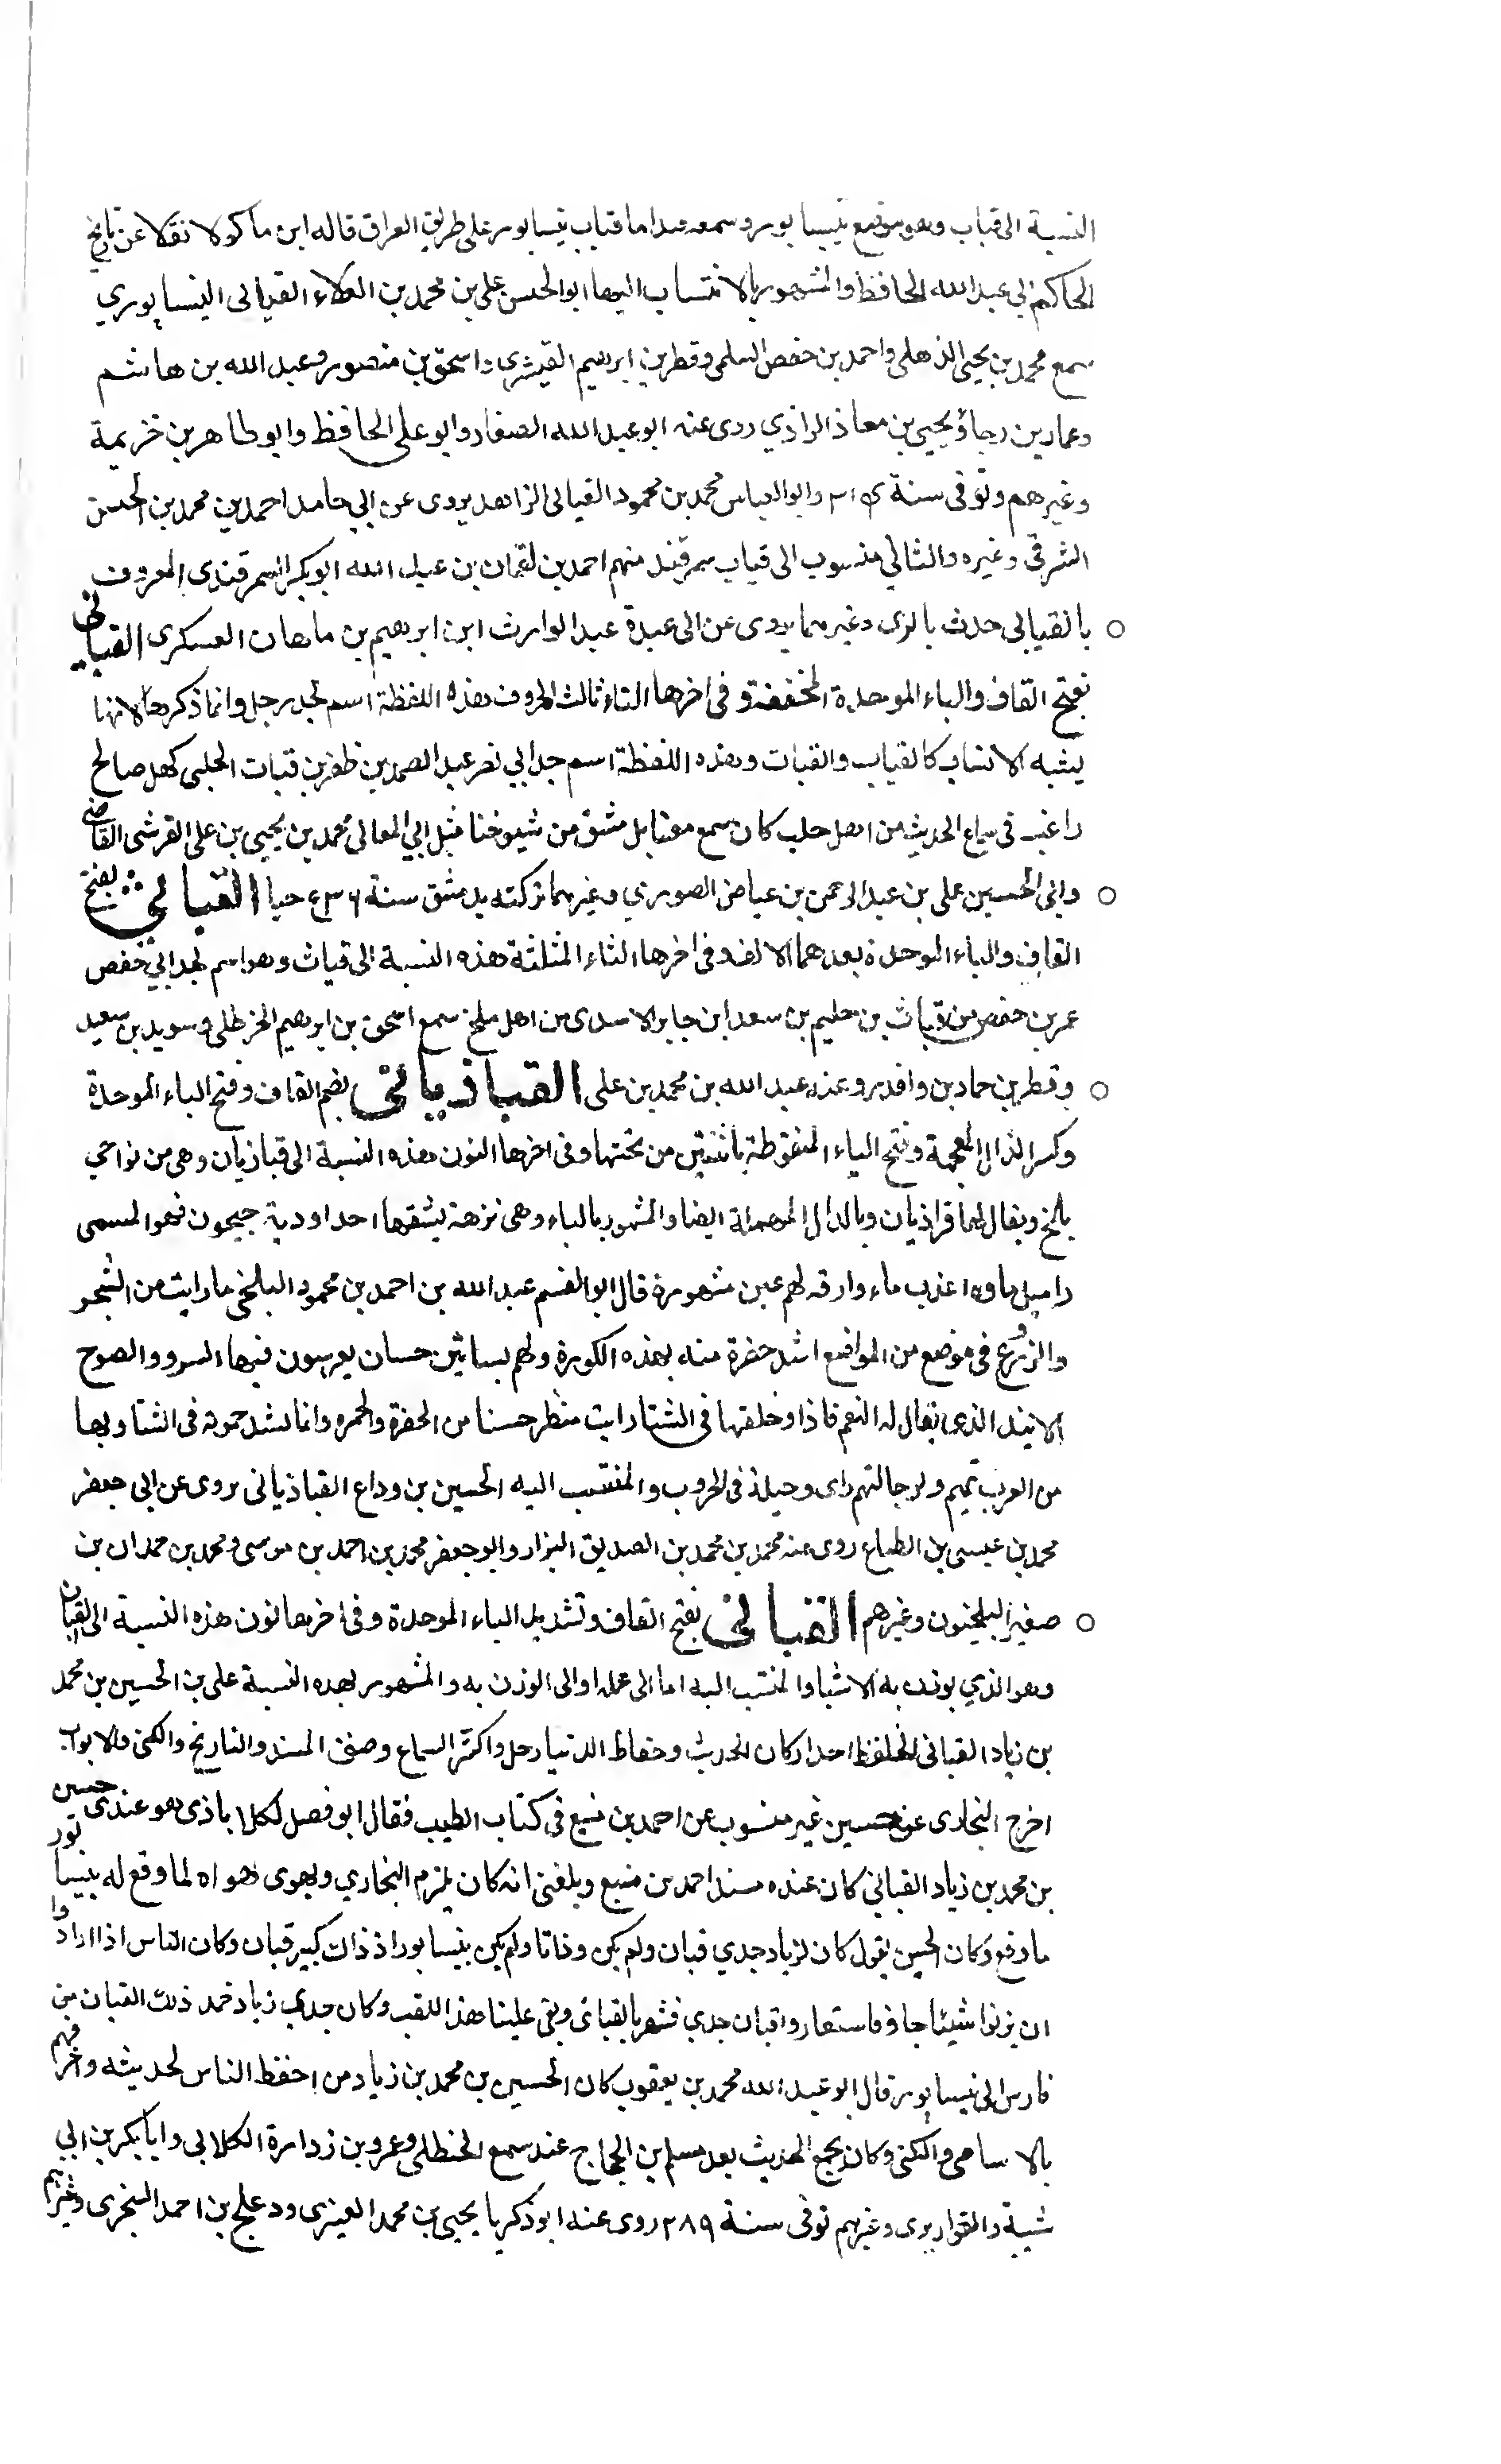 النسبة الى قباب وهو موضع نيسابور وسمعه عبدا ما قباب نيسابور على طريق العراق قاله ابن ماكولا نقلا عن تاريخ
الحاكم ابي عبد الله الحافظ والمشهور بالانتساب اليها ابو الحسن علي بن محمد بن العلاء القبابى النيسابوري
سمع محمد بن يحيى الذهلى واحمد بن حفص السلمى وقطن بن ابرهيم القشيرى واسحق بن منصور وعبد الله بن هاشم
وعمار بن رجا ويحيى بن معاذ الرازي روى عنه ابو عبد الله الصفار وابو على الحافظ وابو طاهر بن خزيمة
وغيرهم وتوفى سنة وابو العباس محمد بن محمود القبابى الزاهد يروى عن ابي حامد احمد بن محمد بن الحسن
الشرقى وغيره والثانى منسوب الى قباب سمرقند منهم احمد بن لقمان بن عبد الله ابو بكر السمرقندى المعروف
بالقبابى حدث بالرى وغيرهما يروى عن ابى عبدة عبد الوارث ابن ابرهيم بن ماهان العسكرى القباتى
بفتح القاف والباء الموحدة المخففة وفى اخرها التاء ثالث الحروف هذه اللفظة اسم لجد رجل وانما ذكرها لانها
يشبه الانساب كالقباب والقبات وهذه اللفظة اسم جد ابي نصر عبد الصمد بن ظفر بن قبات الحلبى كهل صالح
راغب فى سماع الحديث من اهل حلب كان سمع معنا بدمشق من شيوخنا مثل ابي المعالى محمد بن يحيى بن على القرشى القاضى
وابى الحسين على بن عبد الرحمن بن عياض الصوري وغيرهما تركته بدمشق سنة ٤٣٦ حيا القباثى بفتح
القاف والباء الموحدة بعدهما الالف وفى اخرها الثاء المثلثة هذه النسبة الى قباث وهو اسم لجد ابي حفص
عمر بن حفص من قباث بن حليم بن سعد ابن جابر الاسدى من اهل بلخ سمع اسحق بن ابرهيم الحنظلى وسويد بن سعيد
وقطن بن حماد بن واقد روعنه عبد الله بن محمد بن على القباذيانى بضم القاف وفتح الباء الموحدة
وكسر الذال المعجمة وفتح الياء المنقوطة باثنتين من تحتها وفى اخرها النون هذه النسبة الى قباذيان وهى من نواحى
بلخ ويقال لها قراذيان وبالدال المهملة ايضا والمشهور بالباء وهى نزهة يشقها احد اودية جيحون فهو المسمى
راميل ماوه اعذب ماء وارقه لهم عين مشهورة قال ابو القسم عبد الله بن احمد بن محمود البلخى ما رايت من الشجر
والزروع فى موضع من المواضع اشد خضرة منه بهذه الكورة ولهم بساتين حسان يعرسون فيها السرو والصوح
الانبذ الذى يقال له النعم فاذا وخلقتها فى الشتا رايت منظر حسنا من الخضرة والحمره وانما تشد حمرته فى الشتا وبها
من العرب تميم ولرجالتهم راى وحيلة فى الحروب والمنتسب اليه الحسين بن وداع القباذيانى يروى عن ابى جعفر
محمد بن عيسى بن الطباع روى عنه محمد بن محمد بن الصديق البزار وابو جعفر محمد بن احمد بن موسى ومحمد بن حمدان بن
صغير البلخيون وغيرهم القبانى بفتح القاف وتشديد الباء الموحدة وفى اخرها نون هذه النسبة الى القبان
وهو الذي يوزن به الاشيا والمنتسب اليه اما الى عمله او الى الوزن به والمشهور بهده النسبة على بن الحسين بن محمد
بن زياد القبانى الحافظ احد اركان الحديث وحفاظ الدنيا رحل واكثر السماع وصنف المسند والتاريخ والكنى والابواب
اخرج البخارى عن حسين غير منسوب عن احمد بن منيع فى كتاب الطب فقال ابو نصر الكلاباذى هو عندى حسين
بن محمد بن زياد القبانى كان عنده مسند احمد بن منيع وبلغنى انه كان يلزم البخاري ويهوى هواه لما وقع له بنيسابور
ما وقع وكان الحسين يقول كان لزياد جدي قبان ولم يكن وزانا ولم يكن بنيسابور اذ ذاك كبير قبان وكان الناس اذا ارادوا
ان يزنوا شيئا جاؤ فاستعاروا قبان جدي فشهر بالقبانى وبقى علينا هذا اللقب وكان جدي زياد حمد ذلك القبان من
فارس الى نيسابور قال ابو عبد الله محمد بن يعقوب كان الحسين بن محمد بن زياد من احفظ الناس لحديثه واعرفهم
بالاسامى والكنى وكان يجمع الحديث بعد مسلم بن الحجاج عند سمع الحنظلى وعمرو بن زرارة الكلابى وابا بكر بن ابي
شيبة والقواريرى وغيرهم توفى سنة ٢٨٩ روى عنه ابو زكريا يحيى بن محمد العنبرى ودعلج بن احمد السجزى وغيرهم